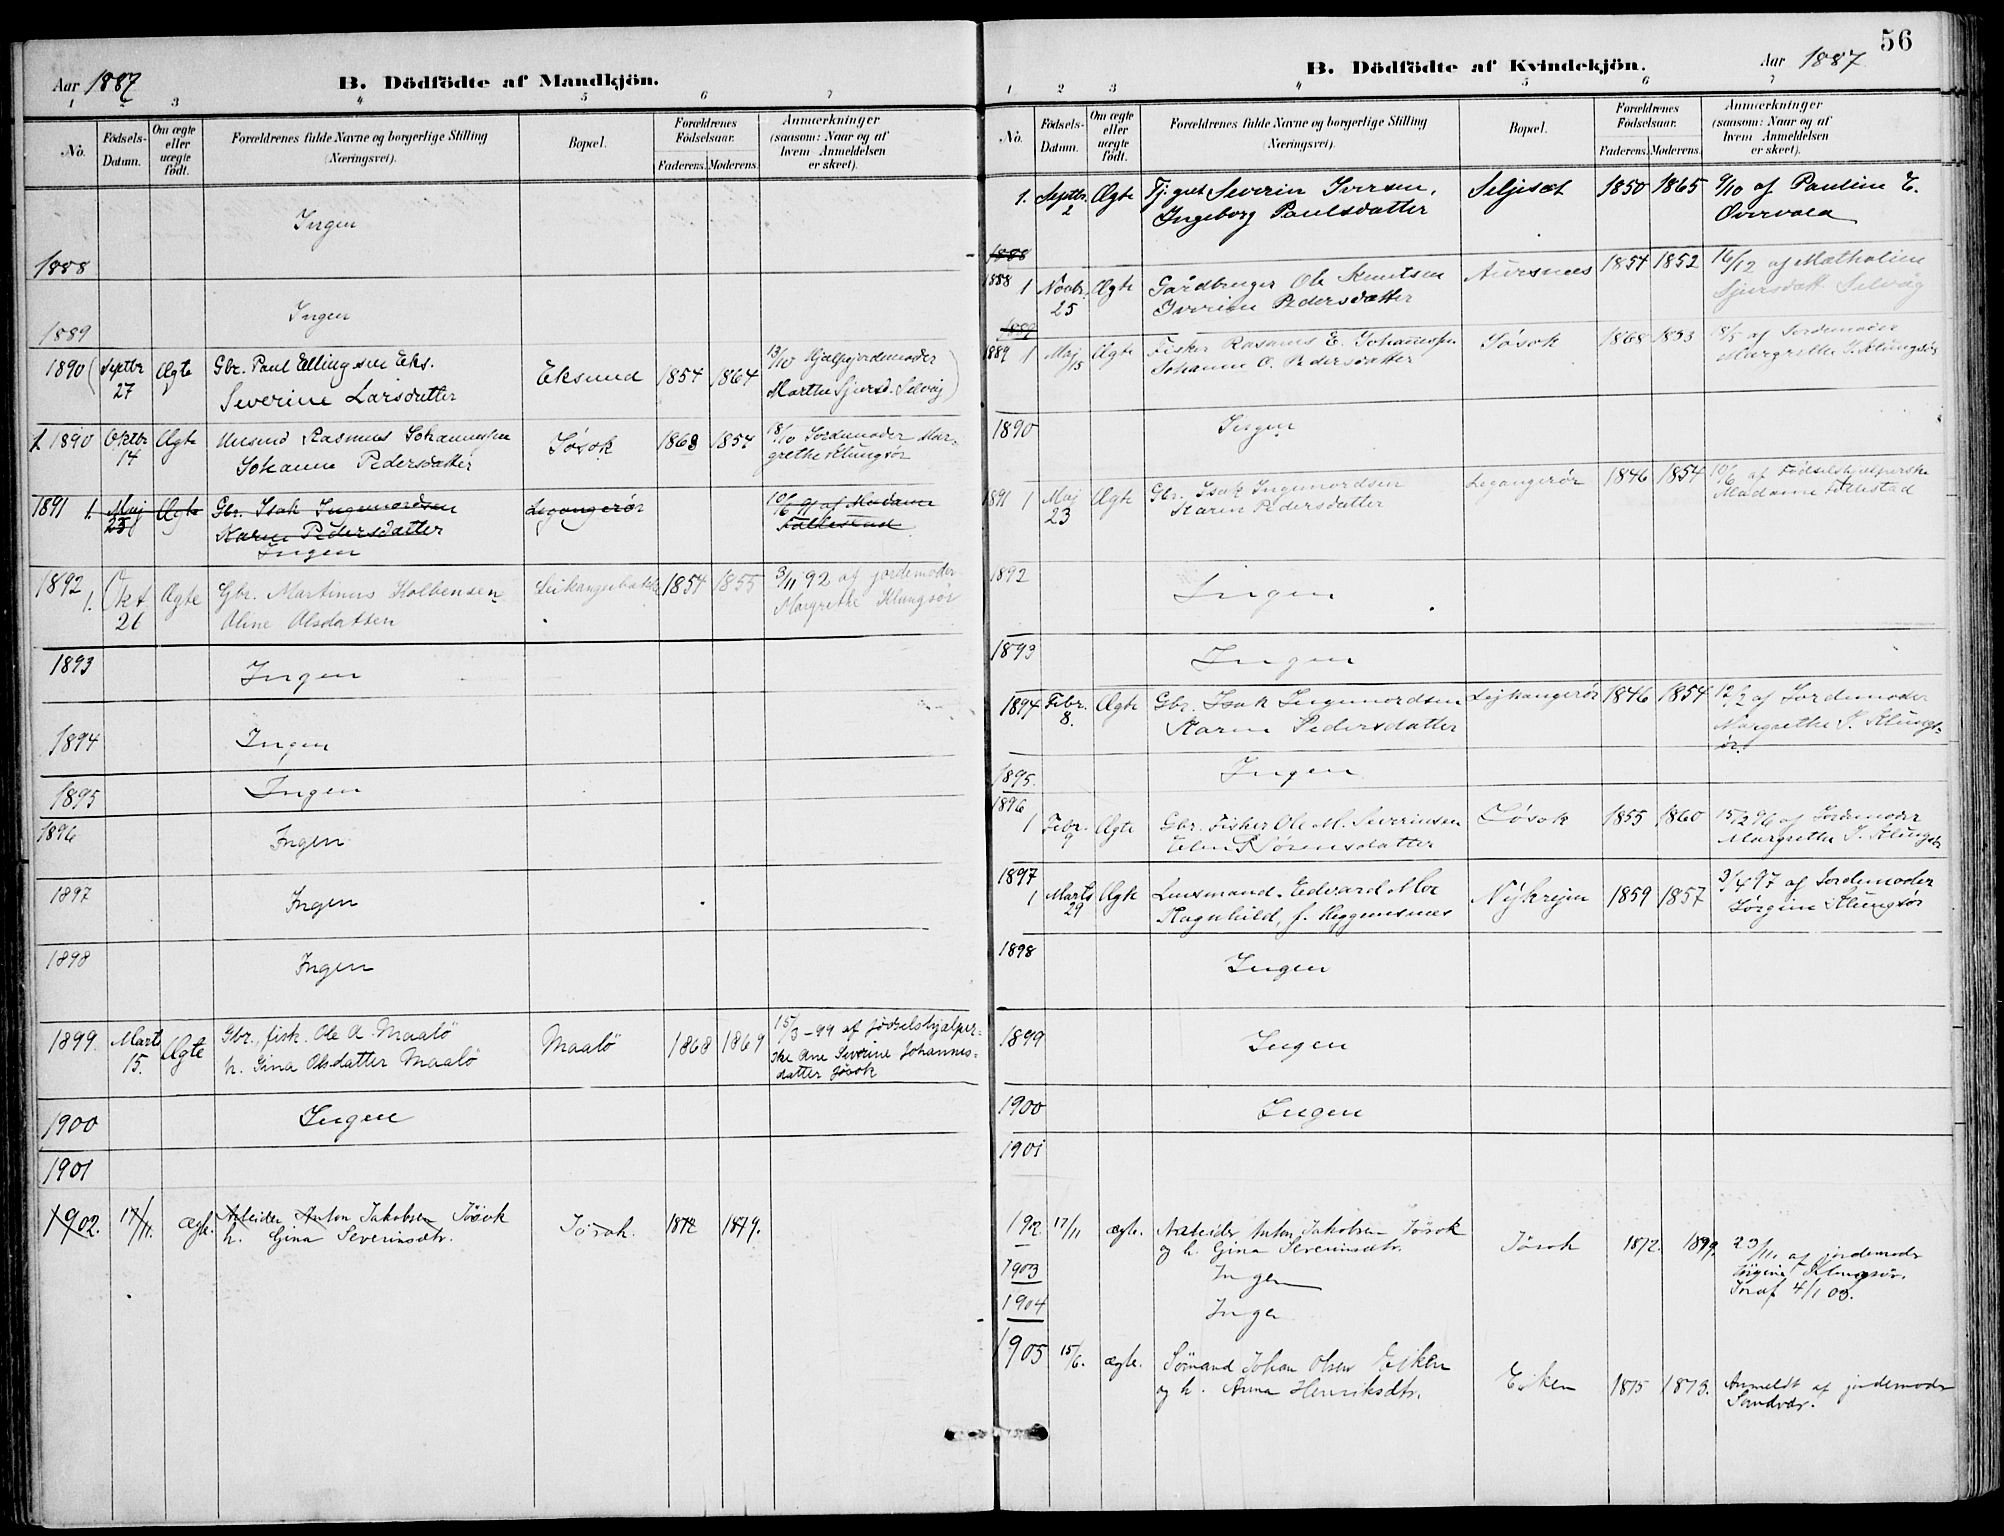 Aar 1887
B. Dödfödte af Mandkjön.
1 2 3 4 5 6 7
No.
Födsels-Datum.
Om ægte eller uægte födt.
Forældrenes fulde Navne og borgerlige Stilling (Næringsvei).
Bopæl.
Forældrenes Födselsaar.
Faderens. Moderens.
Anmærkninger (saasom: Naar og af hvem Anmeldelsen er skeet).
Ingen
1888
Ingen
1889
1890 Septbr 27 Ægte Gbr. Paul Ellingsen Eks. Eksund 1854 1864 13/10 Hjælpejordemoder
Severine Larsdatter Marthe Sjursd. Selvåg
1 1890 Oktbr 14 Ægte Rasmus Johannessen Jøsok 1868 1854 18/10 Jordemoder Mar-
Johanne Pedersdatter grethe Klungsör
1891 1. Maj 23 Ægte Gbr. Isak Ingemordsen Legangerör 10/6 91 af Madame
Karen Pedersdatter Follestad
Ingen
1892 1. Okt 26 Ægte Gbr. Martinus Kolbensen Leikangerbakk 1854 1855 3/11 92 af jordemoder
Aline Olsdatter Margrethe Klungsör
1893 Ingen
1894 Ingen
1895 Ingen
1896 Ingen
1897 Ingen
1898 Ingen
1899. Mart 15. Ægte Gbr. fisk. Ole A. Maalö Maalö 1868 1869 15/3-99 af födselshjælper-
h. Gina Olsdatter Maalö ske Ane Severine Johannes-
datter Jøsok
1900 Ingen
1901
1902. 17/11. ægte. Arbeider Anton Jakobsen Jösok Jösok. 1872 1879.
h. Gina Severinsdtr.
56
B. Dödfödte af Kvindekjön.
Aar 1887
1 2 3 4 5 6 7
No.
Födsels-Datum.
Om ægte eller uægte födt.
Forældrenes fulde Navne og borgerlige Stilling (Næringsvei).
Bopæl.
Forældrenes Födselsaar.
Faderens. Moderens.
Anmærkninger (saasom: Naar og af hvem Anmeldelsen er skeet).
1. Septbr. 2 Ægte Severin Iversen, Seljeset 1850 1865 9/10 af Pauline E.
Ingeborg Paulsdatter Overvaag
1888
1888 1 Novbr. 25 Ægte Gårdbruger Ole Knutsen Aursnes 1854 1852 16/12 af Mathaline
Iverine Pedersdatter Sjursdatt Selvåg
1889
1889 1 Maj 15 Ægte Fisker Rasmus E. Johannessen Jøsok 1868 1853 18/5 af Jordemoder
Johanne O. Pedersdatter Margrethe J. Klungsör
1890 Ingen
1891 1 Maj 23 Ægte Gbr. Isak Ingemordsen Legangerör 1846 1854 10/6 af Födselshjælperske
Karen Pedersdatter Madame Follestad
1892 Ingen
1893 Ingen
1894 Febr. 8. Ægte Gbr. Isak Ingemordsen Lejkangerör 1846 1854 12/2 af Jordemoder
Karen Pedersdatter Margrethe J. Klungs-
ör.
1895. Ingen
1896 1 Febr. 9 Ægte Gbr. Fisker Ole M. Severinsen Jøsok 1855 1860 15/2 96 af Jordemoder
Elen P. Sörensdatter Margrethe J. Klungsör
1897 1 Marts 29 Ægte Lensmand. Edvard Moe Nykrejm 1859 1857 3/4 97 af Jordemoder
Ragnhild, f. Reggemsnes Jörgine Klungsör
1898 Ingen
1899 Ingen
1900 Ingen
1901
1902. 17/11 ægte. Arbeider Anton Jakobsen Jösok Jösok 1872. 1879. 23/11. af jordemoder
og h. Gina Severinsdtr. Jörgine Klungsör.
1903 Ingen 4/1 03.
1904 Ingen
1905 15/6. ægte. Sömand Johan Olsen Eiken Eiken 1875 1873. Anmeldt af jordemoder
og h. Anna Henriksdtr. Sandvær.